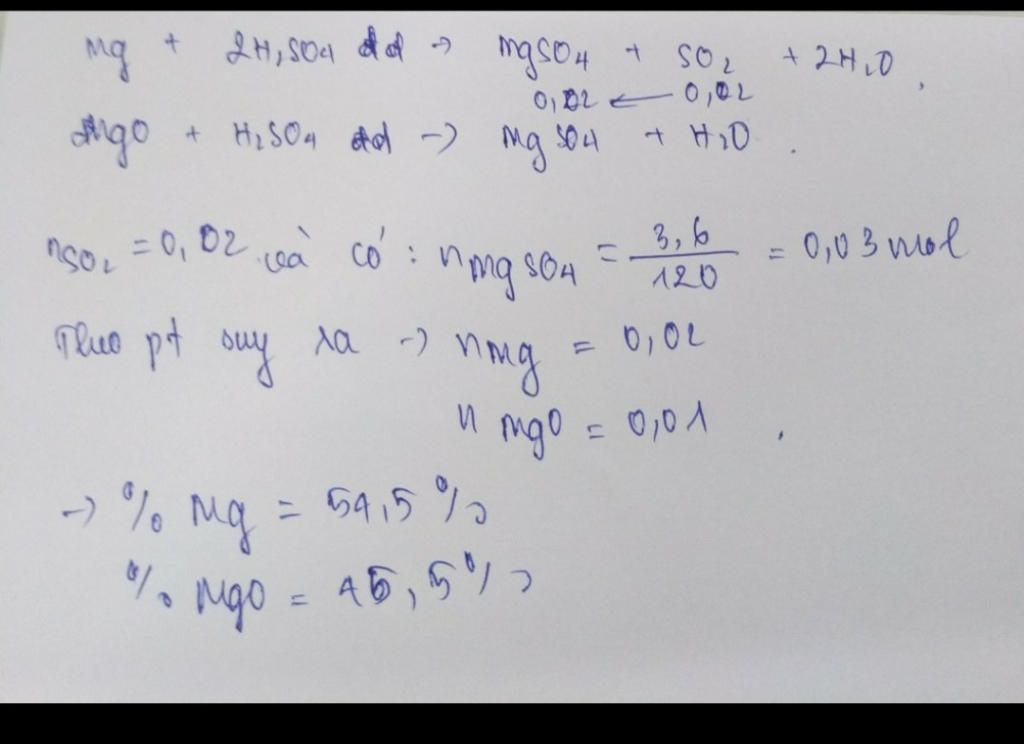 Mg + 2H₂SO₄ đđ → MgSO₄ + SO₂ + 2H₂O
0,02 ← 0,02
MgO + H₂SO₄ đđ → MgSO₄ + H₂O
nSO₂ = 0,02 và có : nMgSO₄ = 3,6/120 = 0,03 mol
Theo pt suy ra → nMg = 0,02
nMgO = 0,01
→ % Mg = 54,5%
% MgO = 45,5%